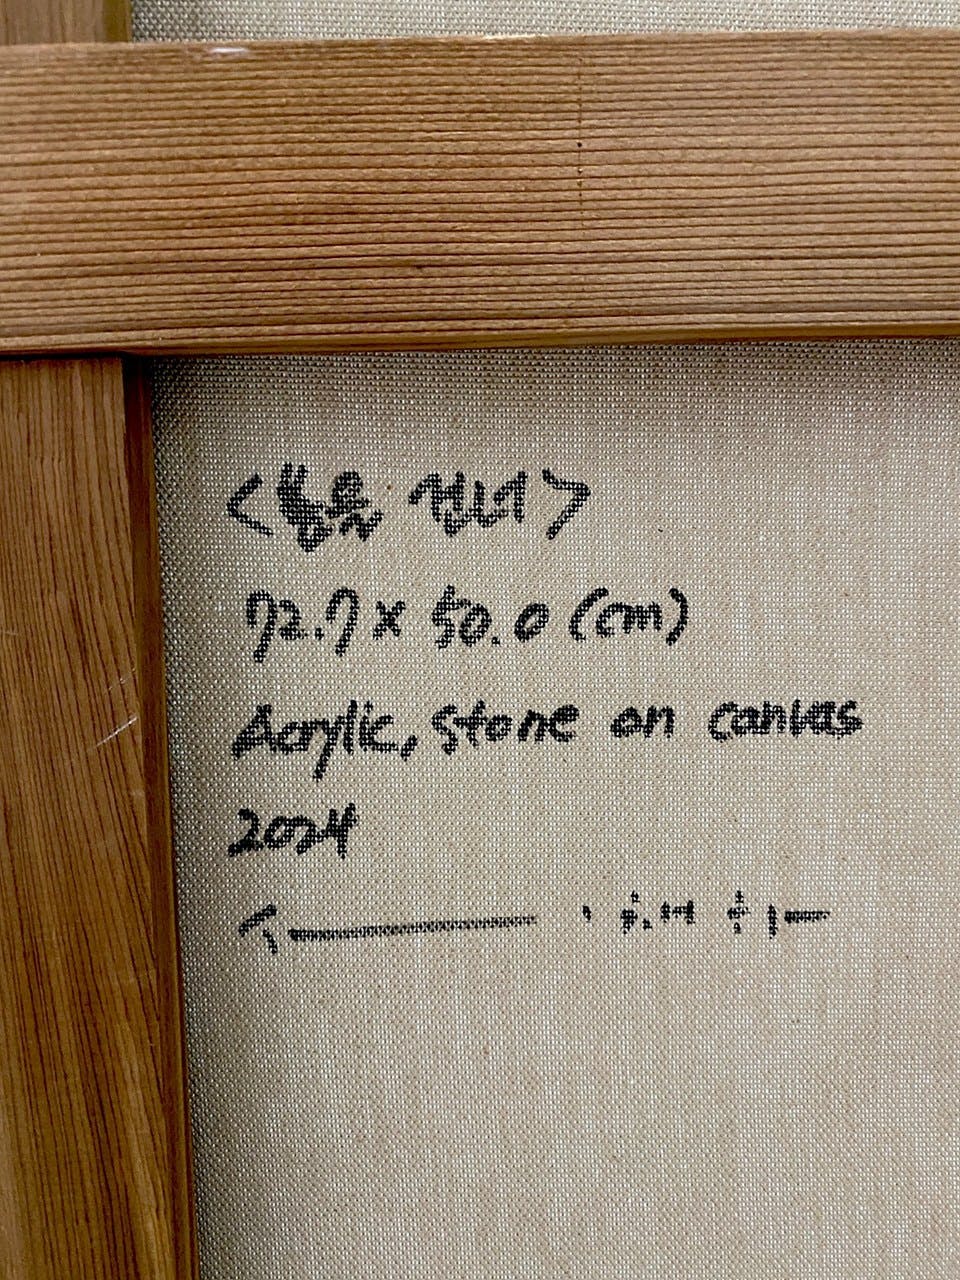 <품을 겁니다>
72.7 x 50.0 (cm)
Acrylic, stone on canvas
2024